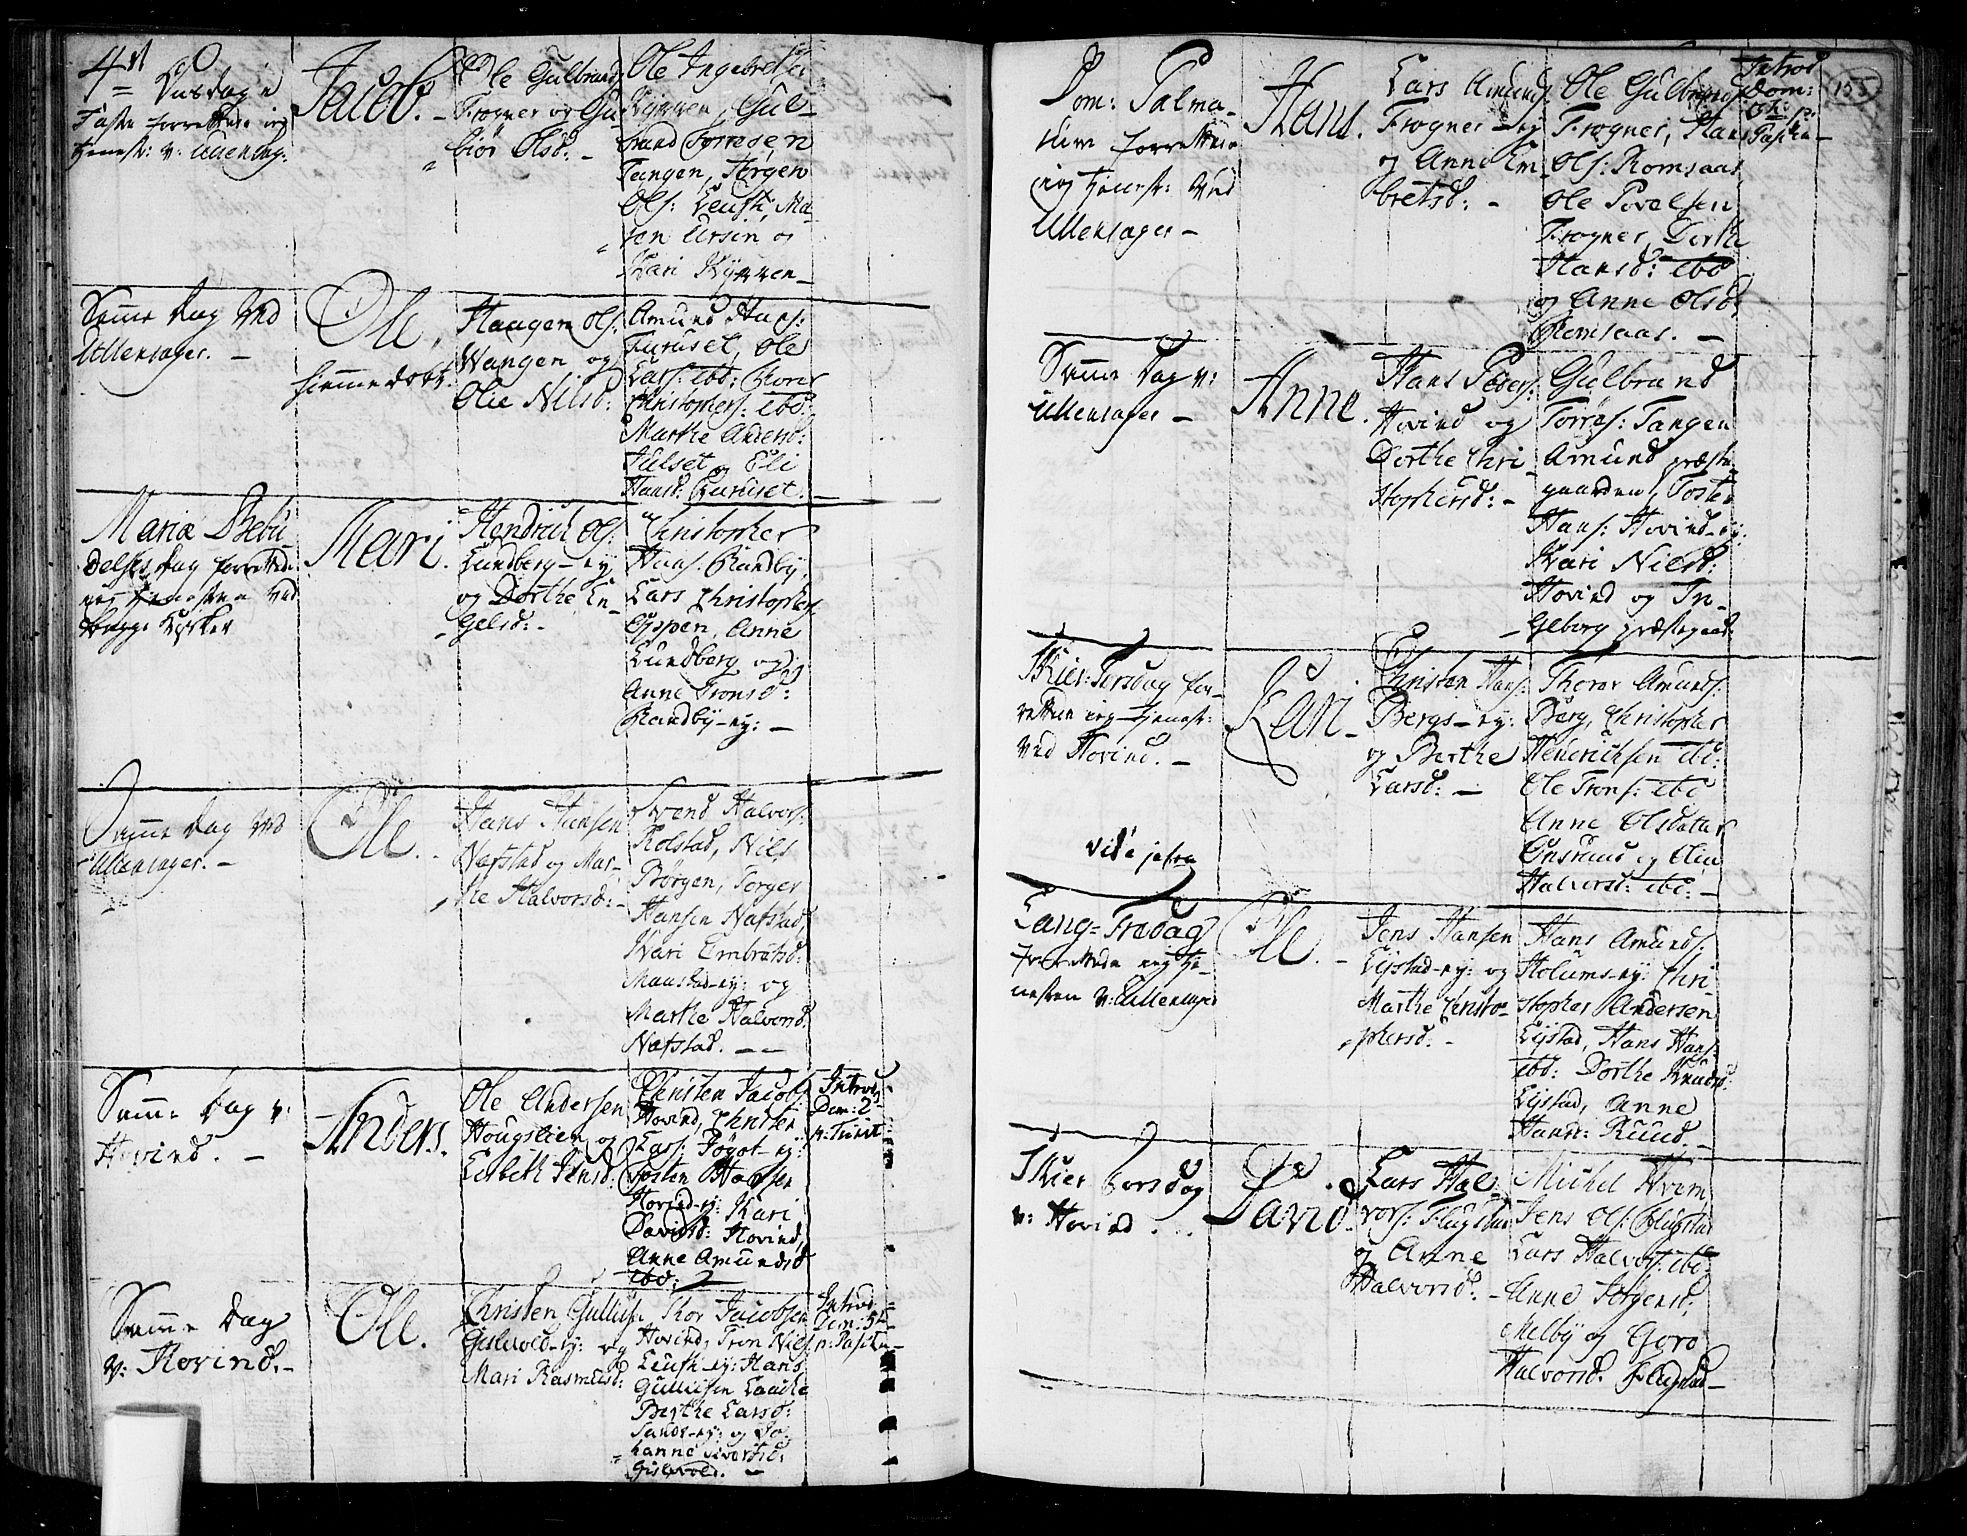 4de Onsdag i
Faste forrettede jeg
tienest: v: Ullensag:
Jacob.
Ole Gulbrands:
Frogner og Gu-
biør Olsd: -
Ole Ingebretsen
Kÿxxen, Gul-
brand Torresen
Tangen, Jørgen
Ols: Leufk, Ma-
ren Ursin og
Kari Kÿxxen -
Same Dag ved
Ullensager. -
Ole,
hiemmedøbt.
Haagen Ols:
Wangen og
Olie Nilsd:
Amund Hans:
Furuset, Ole
Lars: ibd:
Christophers: ibd:
Marthe Andersd:
Julset og Eli
Hansd: Furuset. -
Mariæ Bebu-
delses Dag forrettede
jeg tienesten ved
begge Kirker
Mari.
Hendrich Ols:
Lundberg-ey
og Dorthe En-
gelsd: -
Christopher
Hans: Randby,
Lars Christophers:
Espen, Anne
Lundberg og
Anne Tronsd:
Randby-ey: -
Same Dag ved
Ullensager. -
Ole.
Hans Hansen
Nafstad og Mar-
the Halvorsd: -
Svend Halvors:
Rolstad, Nils
Børgen, Torger
Hansen Nafstad,
Kari Embretsd:
Maustad-ey: og
Marthe Halvorsd:
Nafstad. -
Same Dag v:
Hovind. -
Anders.
Ole Andersen
Hougslien og
Lisbeth Jensd:
Christen Jacobs:
Hovind, Christen
Lars: Jøgot-ey:
Tosten Hansen
Hovind-ey: Kari
Davidsd: Hovind,
Anne Amundsd
ibd:
Introd:
Dom: 2
p: Trinit:
Same Dag
v: Hovind. -
Ole.
Christen Gullius:
Gislevold-ey: og
Mari Rasmusd:
Thor Jacobsen
Hovind, Tron Nils:
Leufk-ey: Hans
Gulliusen Laache
Berthe Larsd:
Sands-ey: og Jo-
hanne Sivertsd:
Gislevold. -
Introd:
Dom: 5te
p: Paschæ
155
Dom: Palma-
rum forrettede
jeg tienest: ved
Ullensager -
Hans.
Lars Amunds:
Frogner-ey
og Anne Em-
bretsd: -
Ole Gulbrands:
Frogner, Hans
Ols: Romsaas
Ole Povelsen
Frogner, Dorthe
Hansd: ibd
og Anne Olsd:
Romsaas. -
Introd
Dom:
Paschæ -
Same Dag v:
Ullensager -
Anne.
Hans Peders:
Hovind og
Dorthe Chri-
stophersd: -
Gulbrand
Torres: Tangen
Amund præste-
gaarden, Tosten
Hans: Hovind-ey:
Kari Nilsd:
Hovind og In-
geborg præstegaar:
Skier-Torsdag for-
rettede jeg tienest:
ved Hovind. -
Kari -
Christen Hans:
Bergs-ey:
og Berthe
Larsd: -
Thorer Amunds:
Berg, Christopher
Henrichsen ibd:
Ole Trons: ibd
Anne Olsdatter
Onsrud og Elin
Halvorsd: ibd: -
Lang-Fredag
forrettede jeg tje-
nesten v: Ullensager
Ole. -
Jens Hansen
Eÿstad-ey: og
Marthe Christo-
phersd: -
Hans Amunds:
Holums-ey: Chri-
stopher Andersen
Eÿstad, Hans Hans:
ibd: Dorthe Knudsd:
Eÿstad, Anne
Hansd: Ruud. -
Skier Torsdag
v: Hovind.
David.
Lars Hal-
vors: Flugstad
og Anne
Halvorsd: -
Michel Hvam
Jens Ols: Flugstad
Lars Halvors: ibd:
Anne Jørgensd:
Melbÿ og Goro
Halvorsd: Flugstad -